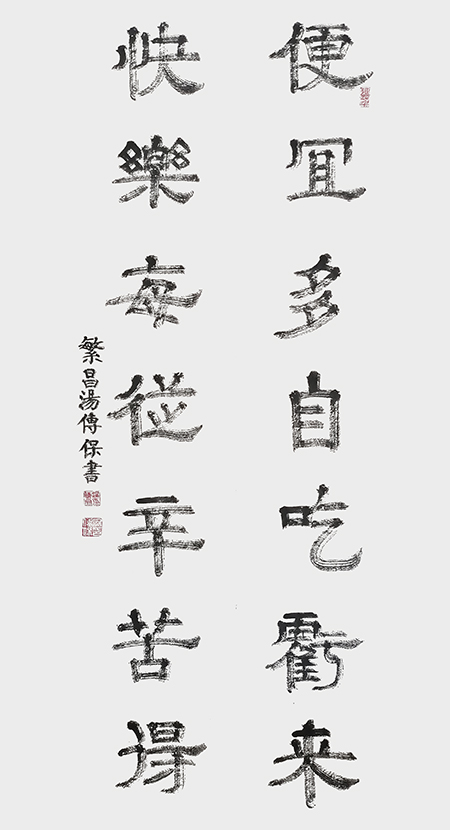 便宜多自吃虧来
快樂每從辛苦得
繁昌湯傳保書